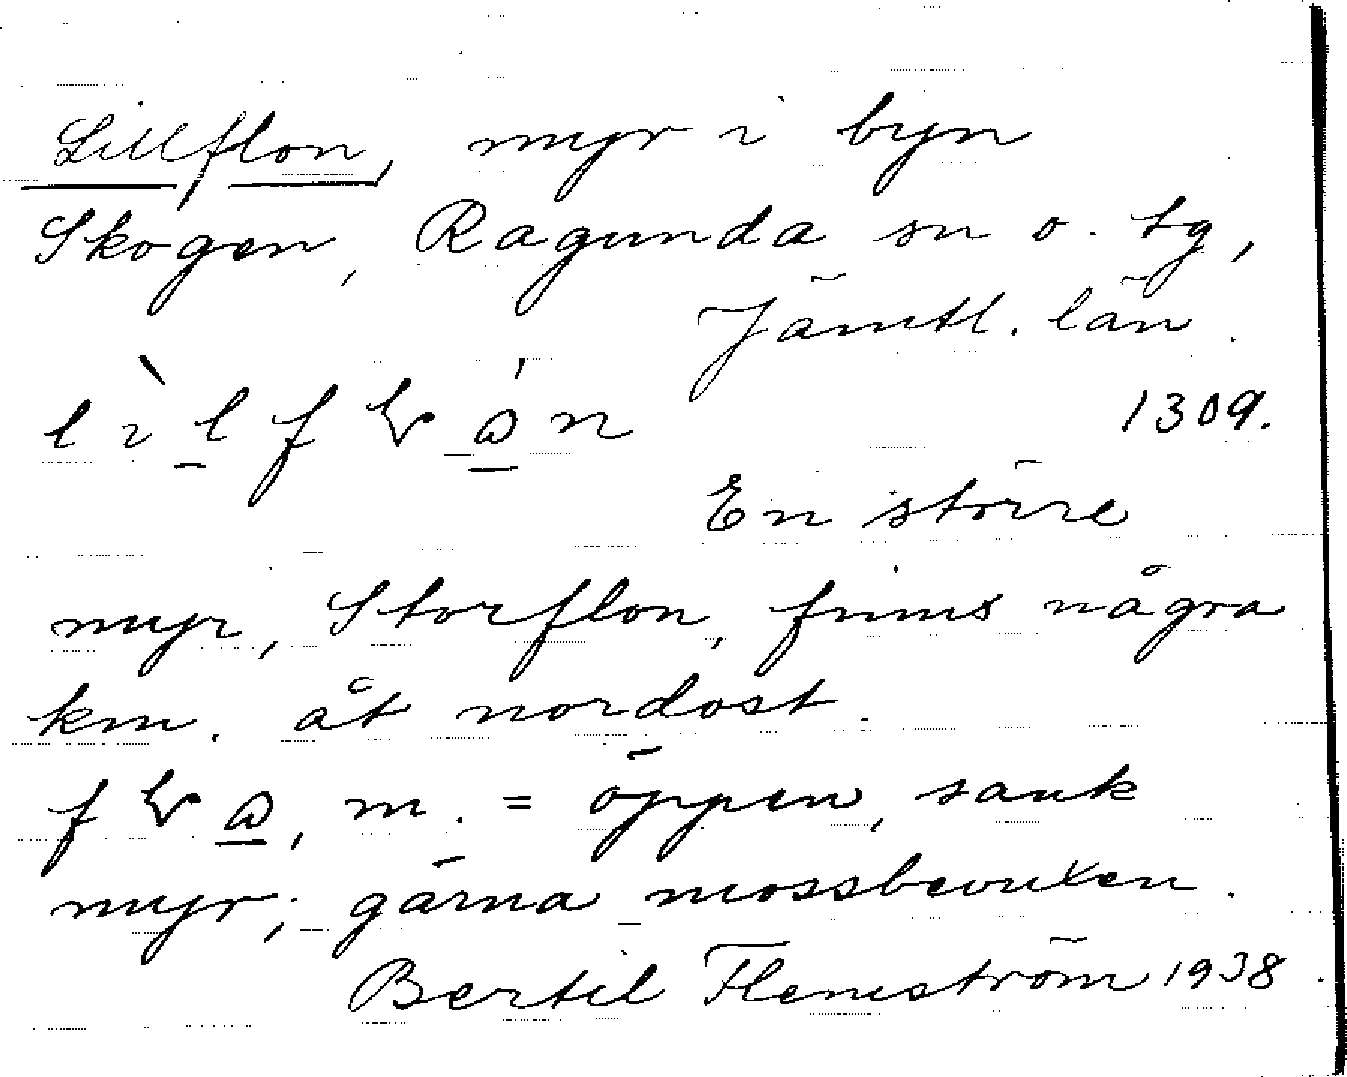 Lillflon, myr i byn
Skogen, Ragunda sn o. tg,
Jämtl. län.
1309.
En större
myr, Storflon, finns några
km. åt nordost.
m. = öppen, sank
myr; gärna mossbevuxen.
Bertil Flemström 1938